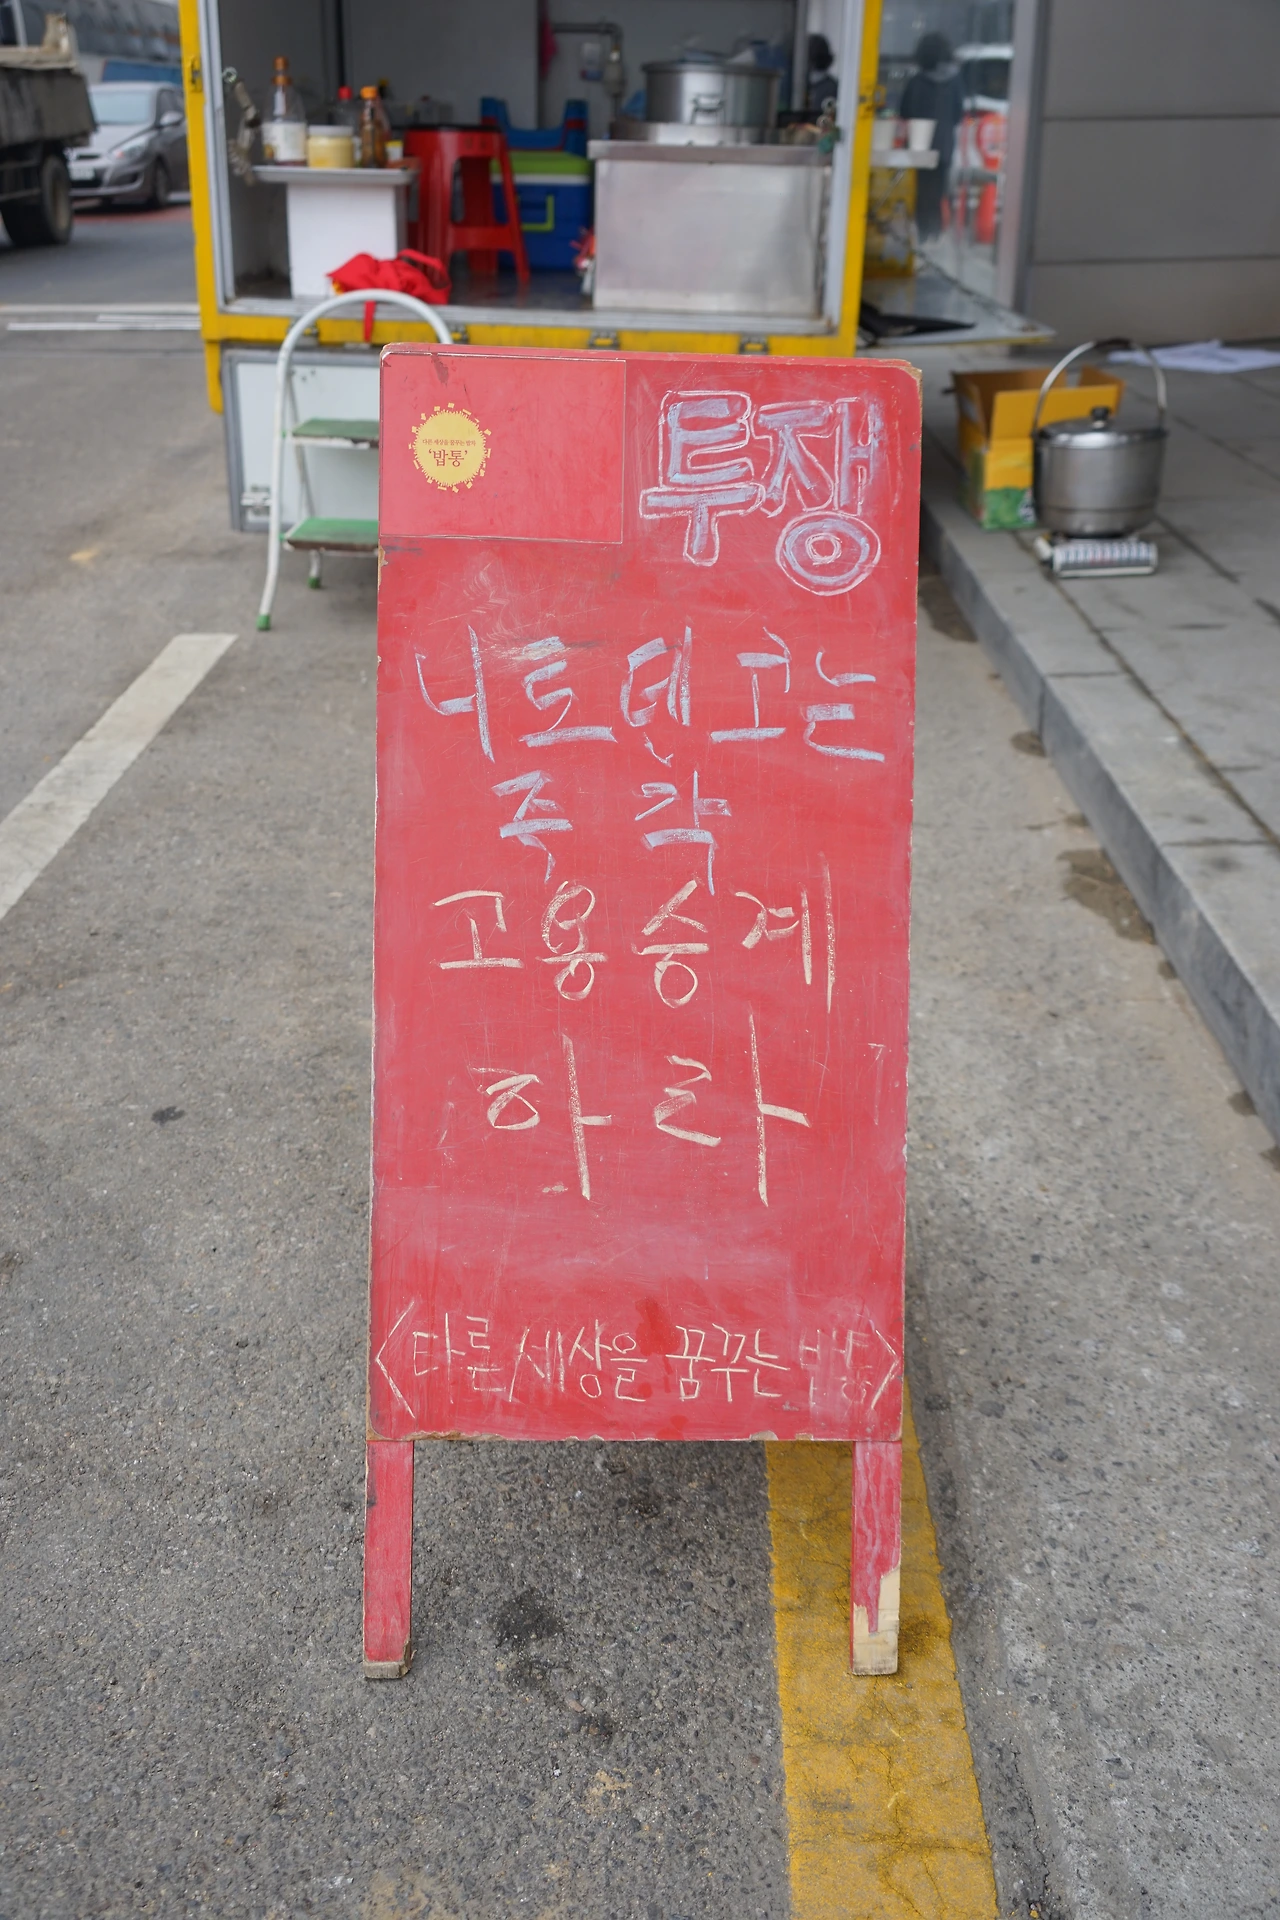 다른 세상을 꿈꾸는 밥차
'밥통'
투쟁
니토덴코는
즉각
고용승계
하라
<타른 세상을 꿈꾸는 밥통>